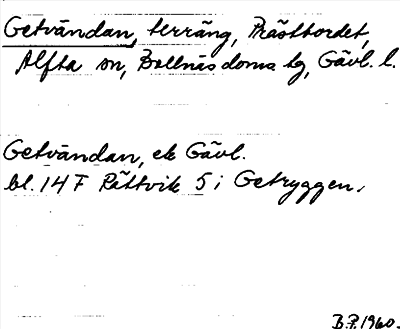 Getvändan, terräng, Prästbordet,
Alfta sn, Bollnäs doms. tg, Gävl. l.
Getvändan, ek Gävl.
bl. 14 F Rättvik 5 i Getryggen.
B.P. 1960.